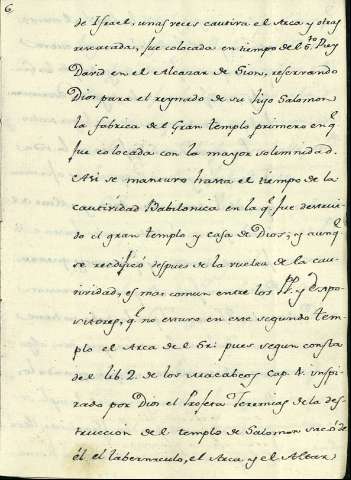 6
de Israel, unas veces cautiva el Arca y otras
rescatada, fue colocada en tiempo del S.to Rey
David en el Alcazar de Sion, reservando
Dios para el reynado de su hijo Salomon
la fabrica del Gran templo primero en q.
fue colocada con la mayor solemnidad.
Asi se mantuvo hasta el tiempo de la
cautividad Babilonica en la q. fue destrui-
do el gran templo y casa de Dios; y aunq.
se reedificó despues de la vuelta de la cau-
tividad, es mas comun entre los PP. y Expo-
sitores, q. no estuvo en este segundo tem-
plo el Arca del Sr. pues segun consta
del lib. 2. de los Macabeos cap. 2. inspi-
rado por Dios el Profeta Jeremias de la des-
truccion del templo de Salomon saco de
él el tabernaculo, el Arca y el Altar